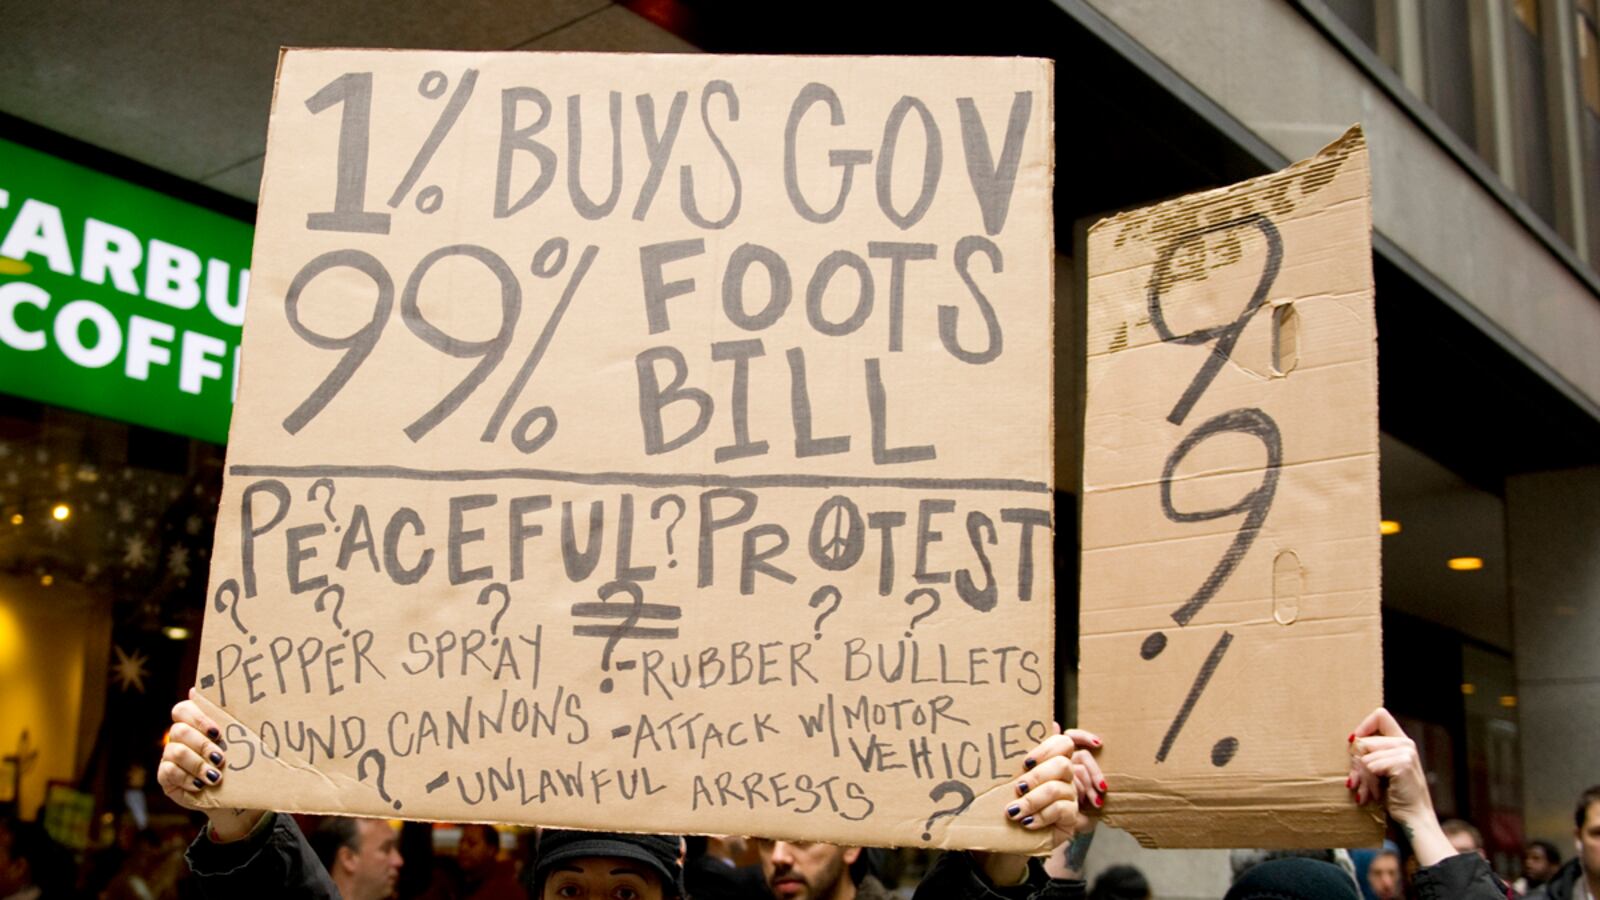 TARBU
COFF
1% BUYS GOV
99% FOOTS
BILL
PEACEFUL? PROTEST
? ? ? ? ? ?
=
-PEPPER SPRAY ?-RUBBER BULLETS
SOUND CANNONS -ATTACK W/ MOTOR
VEHICLES
? -UNLAWFUL ARRESTS ?
9
9
%